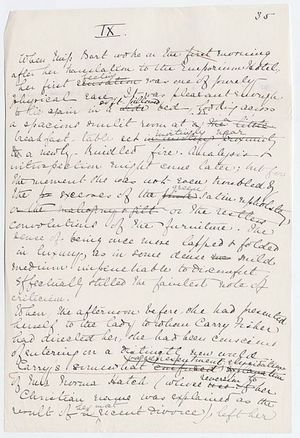 35
IX.
When Miss Bart woke on the first morning
after her translation to the Emporium Hotel,
her first feeling was one of purely
physical ease. It was pleasant enough
to lie again in a soft-pillowed bed, looking across
a spacious sunlit room at a
breakfast-table set invitingly near
to a newly-kindled fire. Analysis &
introspection might come later; but for
the moment she was not even troubled by
the excesses of the upholstery,
or the restless
convolutions of the furniture. The
sense of being once more lapped & folded
in luxury, as in some dense mild
medium impenetrable to discomfort
effectually stilled the faintest note of
criticism.
When, the afternoon before, she had presented
herself to the lady to whom Carry Fisher
had directed her, she had been conscious
of entering on a new world.
Carry's
of Mrs Norma Hatch (whose reversion to
Christian name was explained as the
result of her most recent divorce), left her